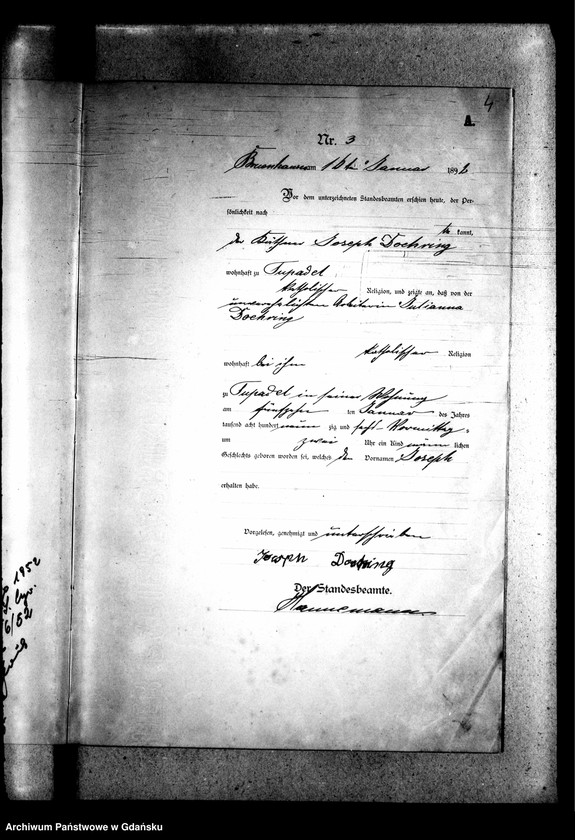 4
A.
Nr. 3
am 16 ten Januar 1892
Vor dem unterzeichneten Standesbeamten erschien heute, der Per-
sönlichkeit nach
kannt,
der Joseph Doehring
wohnhaft zu Tupadel
katholischer Religion, und zeigte an, daß von der
unverehelichten Arbeiterin Julianna
Doehring
katholischer Religion
wohnhaft bei ihm
zu Tupadel in seiner Wohnung
am fünfzehn ten Januar des Jahres
tausend acht hundert neun zig und Vormittag
um zwei Uhr ein Kind männ lichen
Geschlechts geboren worden sei, welches den Vornamen Joseph
erhalten habe.
Vorgelesen, genehmigt und unterschrieben
Joseph Doehring
Der Standesbeamte.
Hannemann
1952
6/52
Archiwum Państwowe w Gdańsku